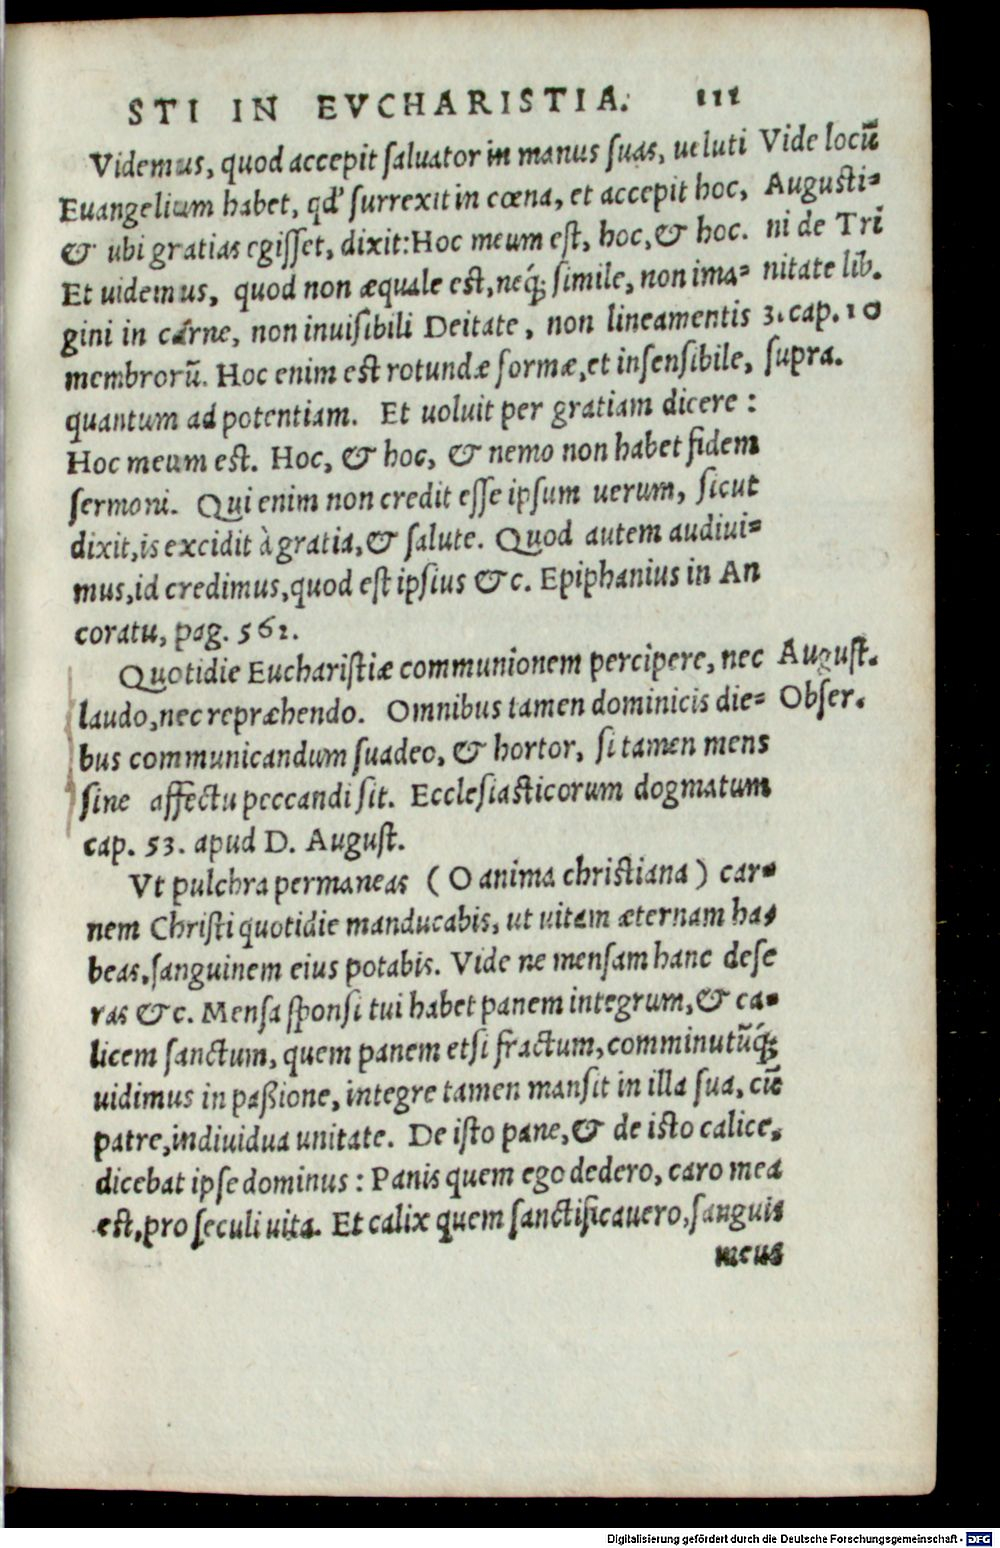 STI IN EVCHARISTIA. 111
Videmus, quod accepit saluator in manus suas, ueluti
Euangelium habet, qd' surrexit in cœna, et accepit hoc,
& ubi gratias egisset, dixit: Hoc meum est, hoc, & hoc.
Et uidemus, quod non æquale est, neq́; simile, non ima=
gini in carne, non inuisibili Deitate, non lineamentis
membrorū. Hoc enim est rotundæ formæ, et insensibile,
quantum ad potentiam. Et uoluit per gratiam dicere:
Hoc meum est. Hoc, & hoc, & nemo non habet fidem
sermoni. Qui enim non credit esse ipsum uerum, sicut
dixit, is excidit à gratia, & salute. Quod autem audiui=
mus, id credimus, quod est ipsius &c. Epiphanius in An
coratu, pag. 561.
Vide locū
Augusti=
ni de Tri
nitate lib.
3. cap. 10
supra.
Quotidie Eucharistiæ communionem percipere, nec
laudo, nec repræhendo. Omnibus tamen dominicis die=
bus communicandum suadeo, & hortor, si tamen mens
sine affectu peccandi sit. Ecclesiasticorum dogmatum
cap. 53. apud D. August.
August.
Obser.
Vt pulchra permaneas (O anima christiana) car=
nem Christi quotidie manducabis, ut uitam æternam ha=
beas, sanguinem eius potabis. Vide ne mensam hanc dese
ras &c. Mensa sponsi tui habet panem integrum, & ca=
licem sanctum, quem panem etsi fractum, comminutūq́;
uidimus in paßione, integre tamen mansit in illa sua, cū
patre, indiuidua unitate. De isto pane, & de isto calice,
dicebat ipse dominus: Panis quem ego dedero, caro mea
est, pro seculi uita. Et calix quem sanctificauero, sanguis
meus
Digitalisierung gefördert durch die Deutsche Forschungsgemeinschaft - DFG